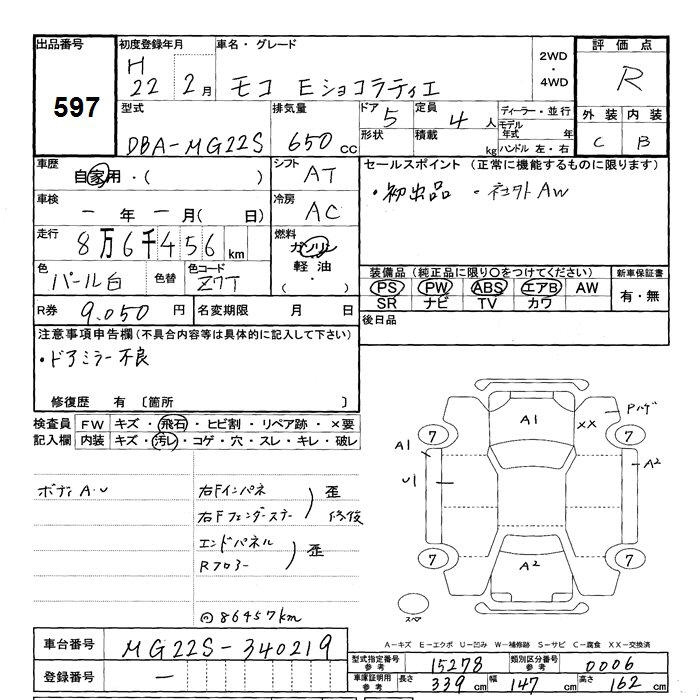 出品番号 初度登録年月 車名・グレード 2WD・4WD 評価点
597 H22 2月 モコ Eショコラティエ R
型式 排気量 ドア 5 定員 4人 ディーラー・並行 外装 内装
DBA-MG22S 650cc 形状 積載 kg モデル年式 年 ハンドル 左・右 C B
車歴 自家用・( ) シフト AT セールスポイント (正常に機能するものに限ります)
車検 ー年ー月( 日) 冷房 AC ・初出品 ・社外AW
走行 8万6千456km 燃料 ガソリン 軽油 ・( )
色 パール白 色替 色コード Z7T
装備品 (純正品に限り○をつけてください) 新車保証書
PS PW ABS エアB AW 有・無
SR ナビ TV カワ
R券 9,050円 名変期限 月 日 後日品
注意事項申告欄 (不具合内容等は具体的に記入して下さい)
・ドアミラー不良
修復歴 有 〔箇所 〕
検査員 FW キズ・飛石・ヒビ割・リペア跡・×要
記入欄 内装 キズ・汚レ・コゲ・穴・スレ・キレ・破レ
ボディA・U
右Fインパネ
右Fフェンダーステー 歪 修復
エンドパネル
Rフロアー 歪
86457km
A1 XX Pハゲ
7 7
A1 A2
U1
7 7
A2
スペア
A-キズ E-エクボ U-凹み W-補修跡 S-サビ C-腐食 XX-交換済
車台番号 MG22S-340219
登録番号 ー
型式指定番号 参考 15278 類別区分番号 参考 0006
車庫証明用 参考 長さ 339cm 幅 147cm 高さ 162cm